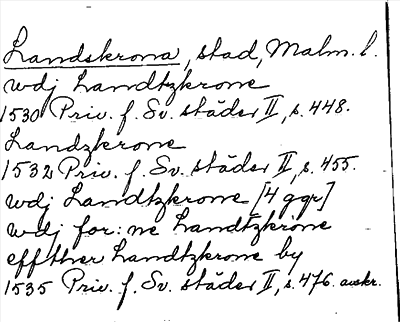 Landskrona, stad, Malm. l.
wdj Landtzkrone
1530 Priv. f. Sv. städer II, s. 448.
Landzkrone
1532 Priv. f. Sv. städer II, s. 455.
wdj Landtzkrone [4 ggr]
wdj for: ne Landtzkrone
effther Landtzkrone by
1535 Priv. f. Sv. städer II, s. 476. avskr.